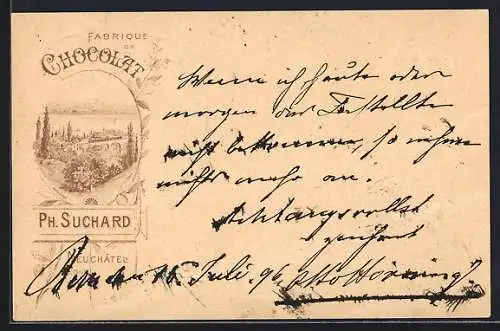 FABRIQUE
DE
CHOCOLAT
PH. SUCHARD
NEUCHÂTEL
Wenn ich heute oder
morgen das Bestellte
nicht bekomme, so nehme
nichts mehr an.
Achtungsvollst
zeichnet
15. Juli. 96. Otto